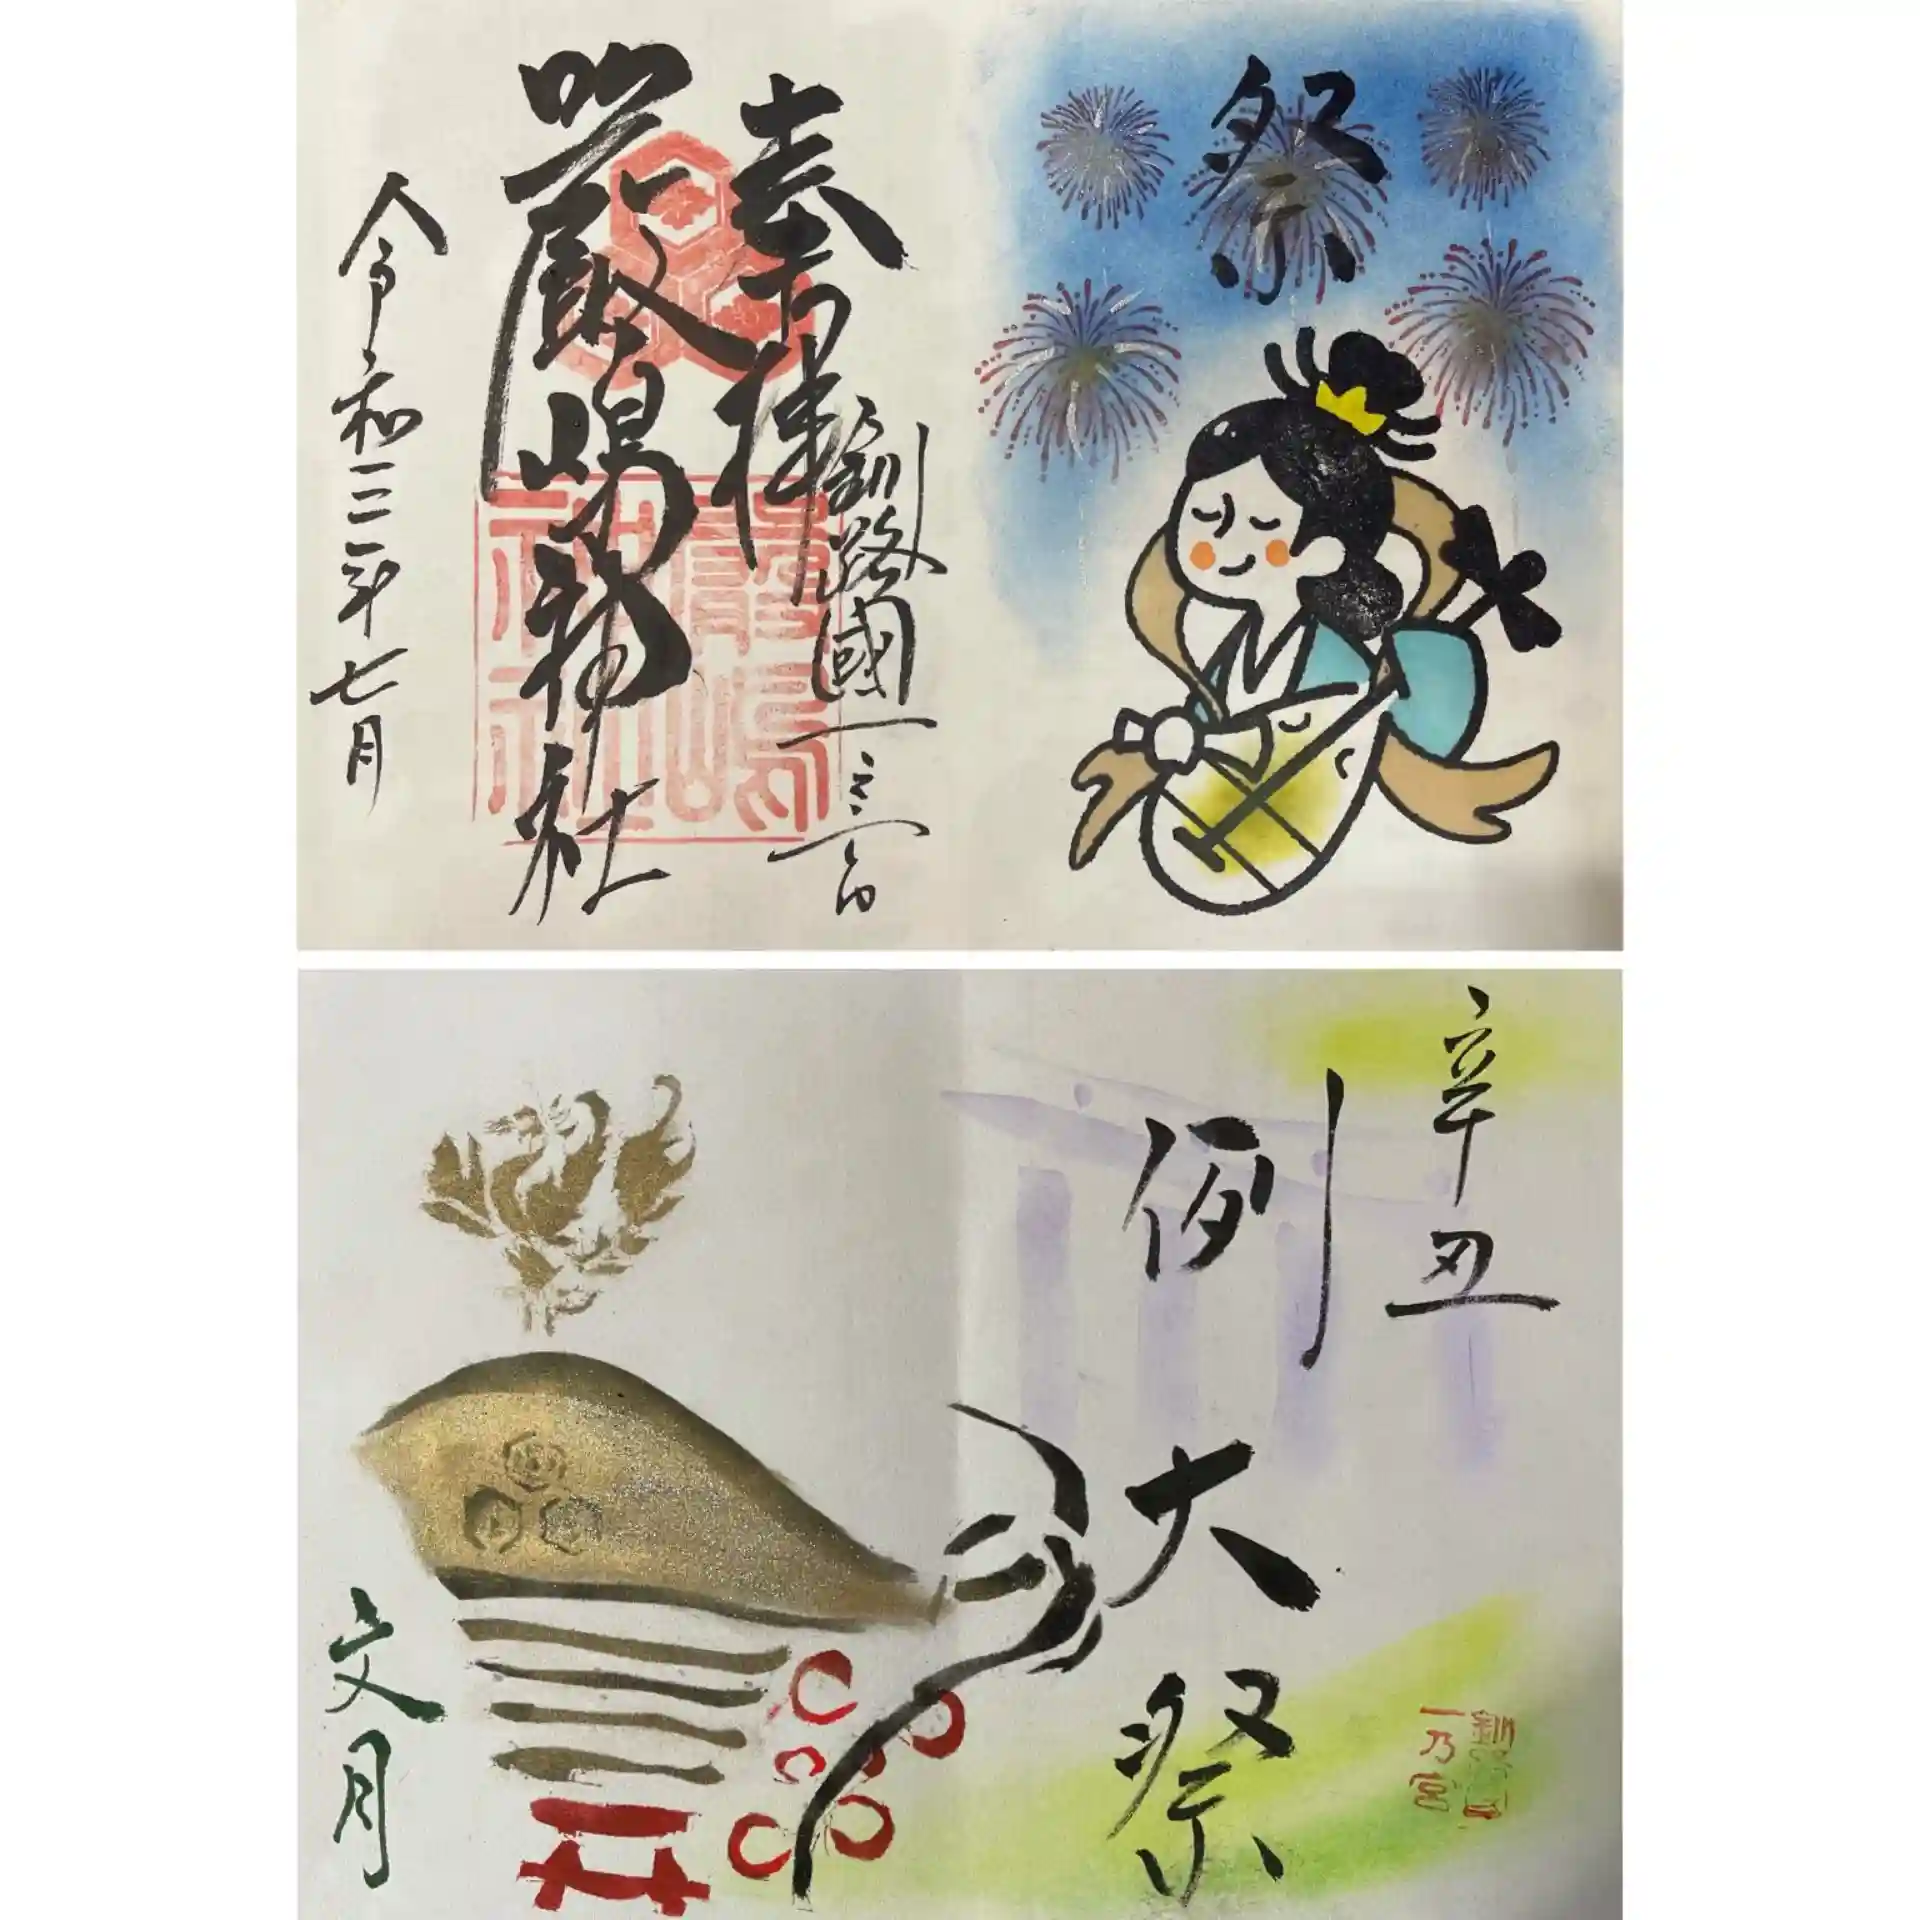 祭
釧路國一之宮
奉拝
厳嶋神社
嚴嶋神社
令和三年七月
辛丑
例大祭
釧路國一乃宮
文月